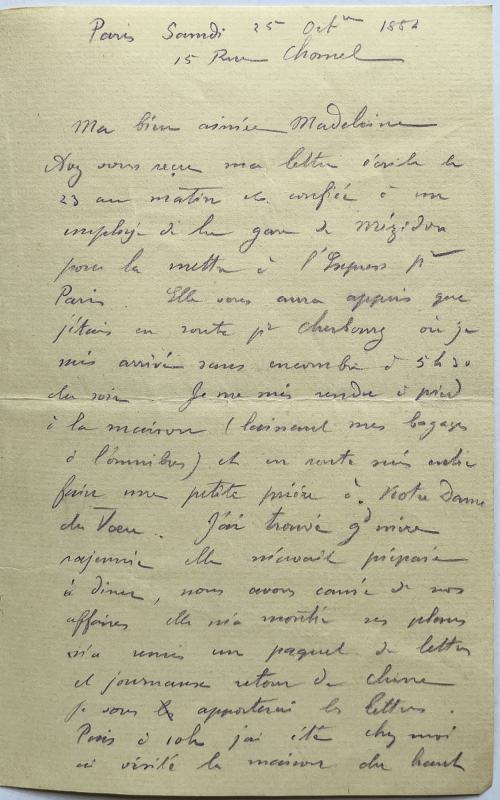 Paris Samdi 25 Octre 1884
15 Rue Chomel
Ma bien aimée Madeleine
Avez vous reçu ma lettre écrite le
23 au matin et confiée à un
employé de la gare de Mézidon
pour la mettre à l'Express pr
Paris. Elle vous aura appris que
j'étais en route pr Cherbourg où je
suis arrivé sans encombre à 5h30
du soir. Je me suis rendu à pied
à la maison (laissant mes bagages
à l'omnibus) et en route suis entré
faire une petite prière à Notre Dame
du Voeu. J'ai trouvé gd mère
rajeunie elle m'avait préparé
à diner, nous avons causé de nos
affaires elle m'a montré ses plans
m'a remis un paquet de lettres
et journaux retour de Chine
je vous apporterai les lettres.
Puis à 10h j'ai été chez moi
ai visité la maison du haut